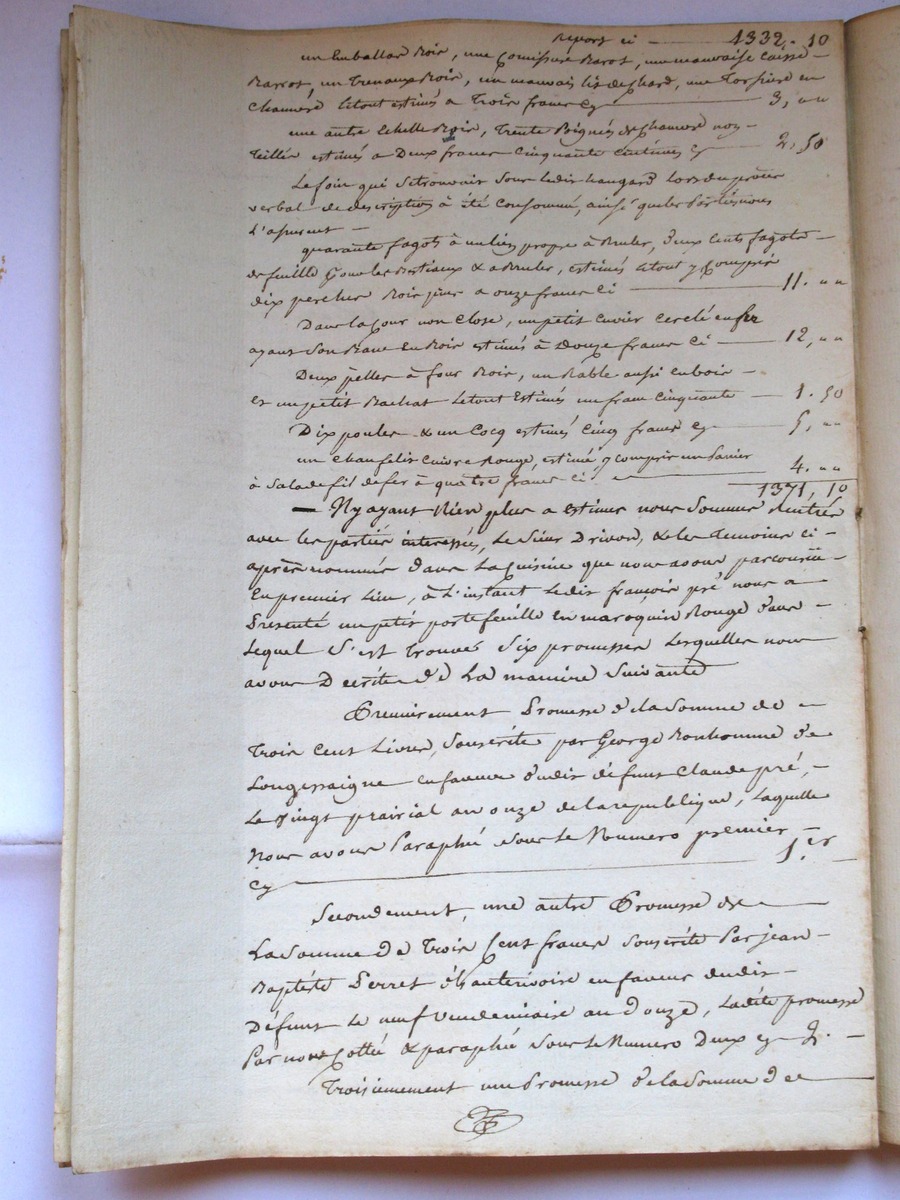 Report ci — 1332. 10
un Emballar Bois, une mauvaise caisse
un mauvais lit
letout estimés a trois francs cy — 3, " "
une autre Echelle Bois, trente Poignés de Chanvre non
teillée estimés a Deux francs Cinquante centimes cy — 2. 50
Le foin qui setrouvoit sous ledit hangard lors du procès
verbal de description à été consommé, ainsi que les parties nous
L'assurent —
quarante fagots à un lien propre à Bruler, Deux cents fagots —
de feuille pour les Bestiaux & a Bruler, estimés letout y Compris
dix perches Bois à onze francs Ci — 11. " "
Dans la Cour non Close, un petit Cuvier cerclé en fer
ayant son Banc En Bois estimés à Douze francs Ci — 12, " "
Deux pelles à four Bois, un Rable aussi en bois —
et un petit Bachat letout Estimés un franc Cinquante — 1. 50
Dix poules & un Cocq estimés Cinq francs cy — 5, " "
un Chaufelit Cuivre Rouge, estimé y compris un Panier
à Salade fil de fer à quatre francs ci — 4. " "
1371, 10
— N'y ayant Rien plus a estimer nous sommes Rentrés
avec les parties intéressés, Le Sieur Drivon, & les temoins ci —
après nommés Dans La Cuisine que nous avons parcourüe —
En premier Lieu, à L'instant Ledit françois pré nous a
Présenté un petit portefeuille en maroquin Rouge dans —
Lequel S'est trouvés Six promesses Lesquelles nous
avons Décrites de La maniere Suivante
Premierement Promesse de la somme de —
trois Cent Livres, Souscrite par George Bonhomme de
Longessaigne en faveur dudit défunt Claude pré, —
Le vingt prairial an onze de la republique, Laquelle
nous avons Paraphé sous le Numero premier —
cy — 1.er
Secondement, une autre Promesse de —
La Somme de trois Cent francs Souscrite Par jean —
Baptiste Perret en faveur dudit —
Défunt Le neuf vendemiaire an douze, Ladite promesse
Par nous Cotté & paraphé sous le Numero Deux cy 2. —
troisiemement une Promesse de la somme de —